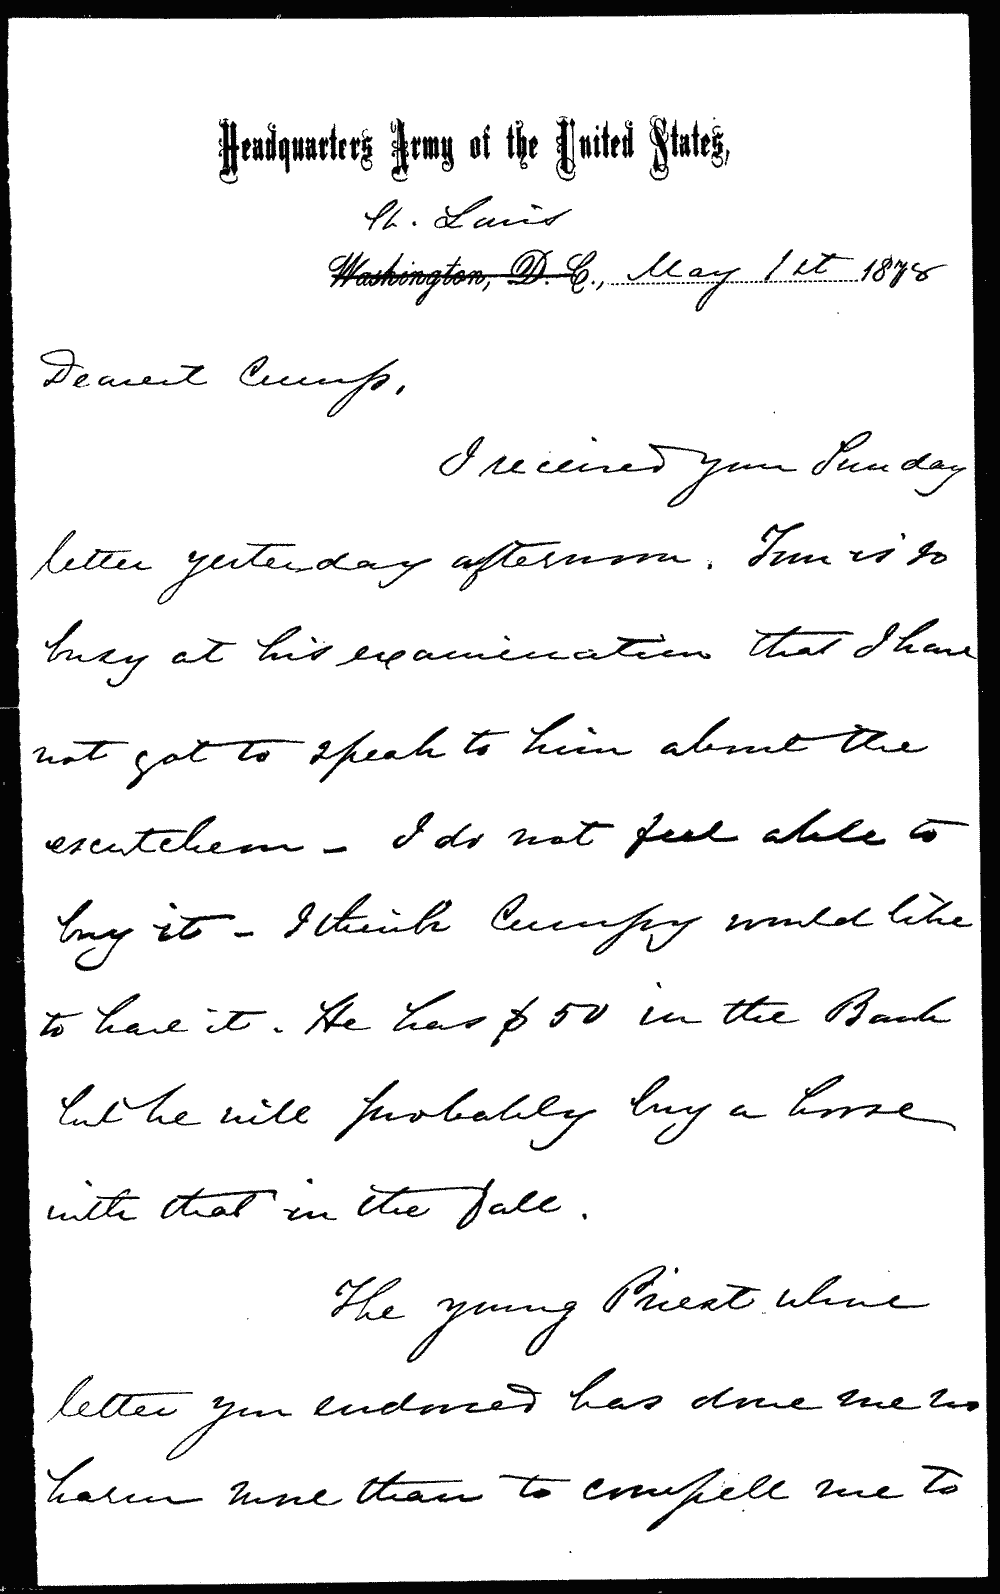 Headquarters Army of the United States,
St. Louis
Washington, D. C., May 1st 1878
Dearest Cump,
I received your Sunday
letter yesterday afternoon. Tom is so
busy at his examination that I have
not got to speak to him about the
escutcheon - I do not feel able to
buy it - I think Cumpy would like
to have it. He has $50 in the Bank
but he will probably buy a horse
with that in the Fall.
The young Priest whose
letter you endorsed has done me no
harm more than to compell me to